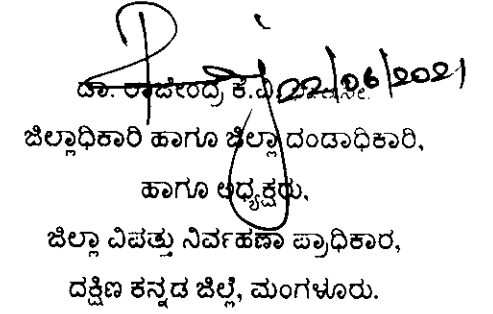 22/06/2021
ಡಾ. ರಾಜೇಂದ್ರ ಕೆ.ವಿ.
ಜಿಲ್ಲಾಧಿಕಾರಿ ಹಾಗೂ ಜಿಲ್ಲಾ ದಂಡಾಧಿಕಾರಿ,
ಹಾಗೂ ಅಧ್ಯಕ್ಷರು,
ಜಿಲ್ಲಾ ವಿಪತ್ತು ನಿರ್ವಹಣಾ ಪ್ರಾಧಿಕಾರ,
ದಕ್ಷಿಣ ಕನ್ನಡ ಜಿಲ್ಲೆ, ಮಂಗಳೂರು.